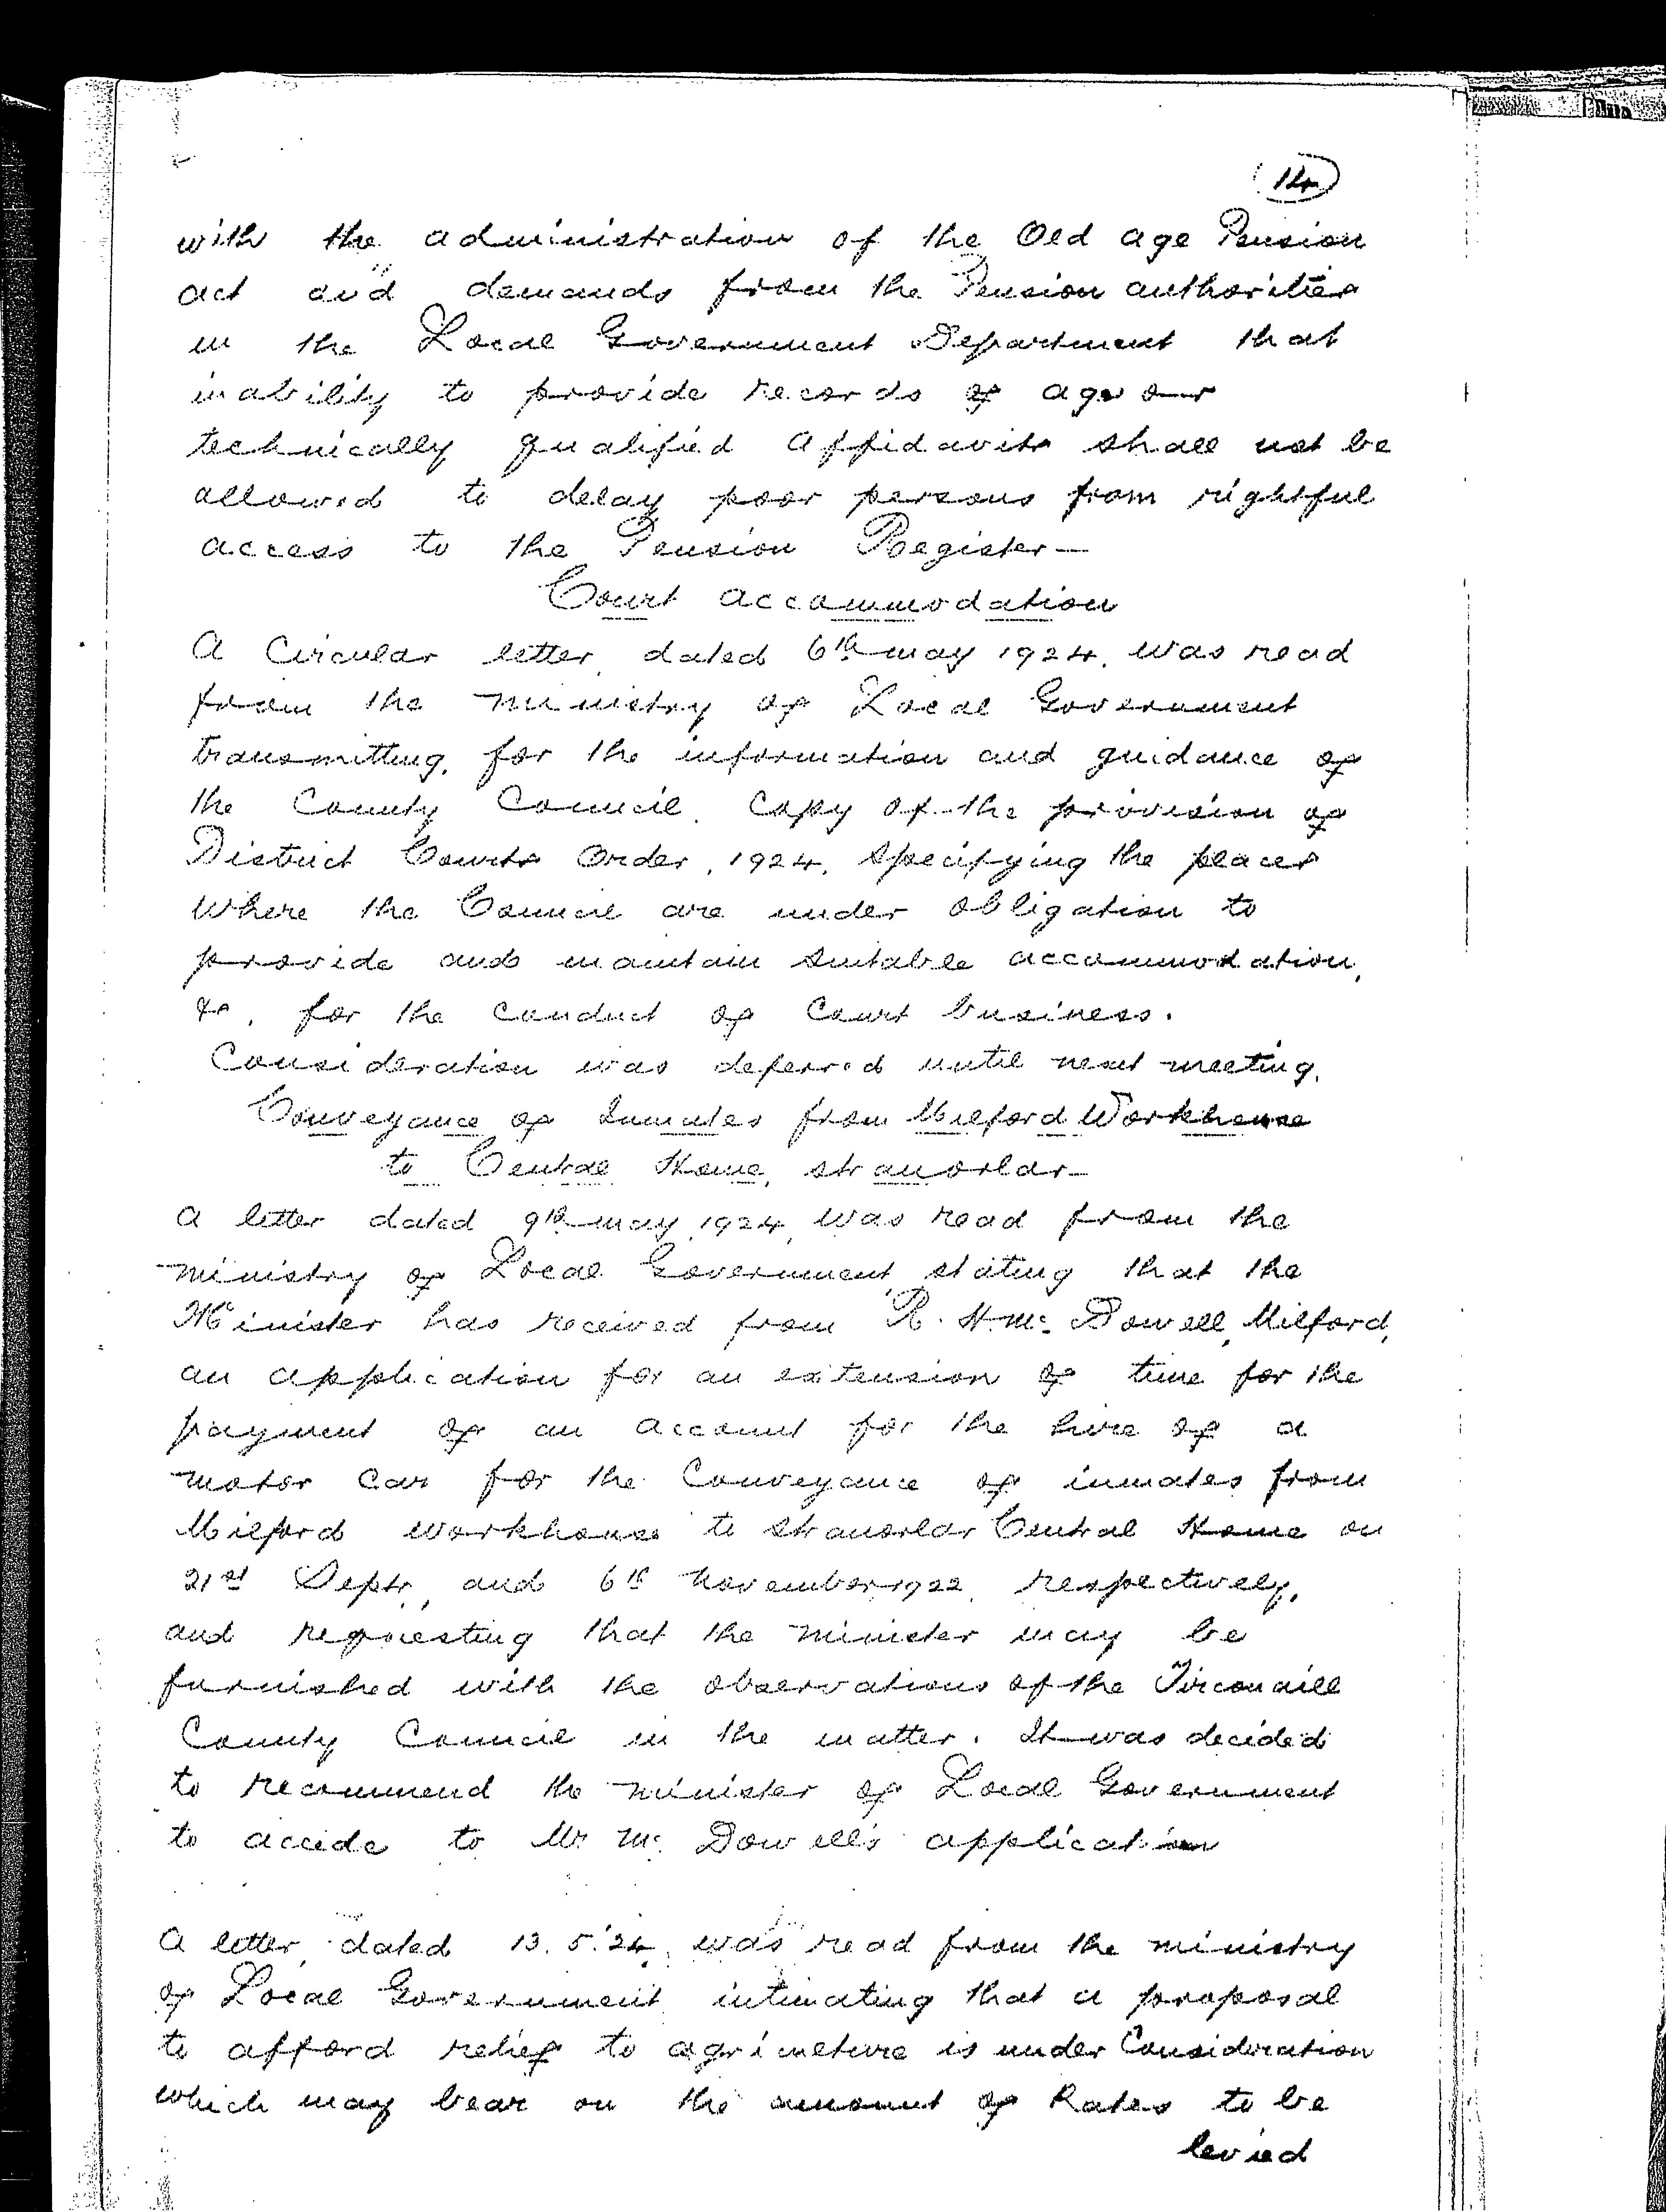 14
with the administration of the Old age Pension
act and demands from the Pension authorities
in the Local Government Department that
inability to provide records of age or
technically qualified affidavits shall not be
allowed to delay poor persons from rightful
access to the Pension Register—
Court accommodation
A Circular letter, dated 6th may 1924, was read
from the ministry of Local Government
transmitting, for the information and guidance of
the County Council, Copy of the provision of
District Courts Order, 1924, specifying the places
where the Council are under obligation to
provide and maintain suitable accommodation,
&c, for the conduct of Court business.
Consideration was deferred until next meeting.
Conveyance of Inmates from Milford Workhouse
to Central Home, stranorlar—
A letter dated 9th may 1924, was read from the
ministry of Local Government, stating that the
Minister has received from R. H. Mc. Dowell, Milford,
an application for an extension of time for the
payment of an account for the hire of a
motor car for the Conveyance of inmates from
Milford workhouse to stranorlar Central Home on
21st Septr, and 6th november 1922, respectively,
and requesting that the minister may be
furnished with the observations of the Tirconaill
County Council in the matter. It was decided
to recommend the minister of Local Government
to accede to Mr Mc. Dowell's application
A letter, dated 13.5.'24, was read from the ministry
of Local Government intimating that a proposal
to afford relief to agriculture is under Consideration
which may bear on the amount of Rates to be
levied